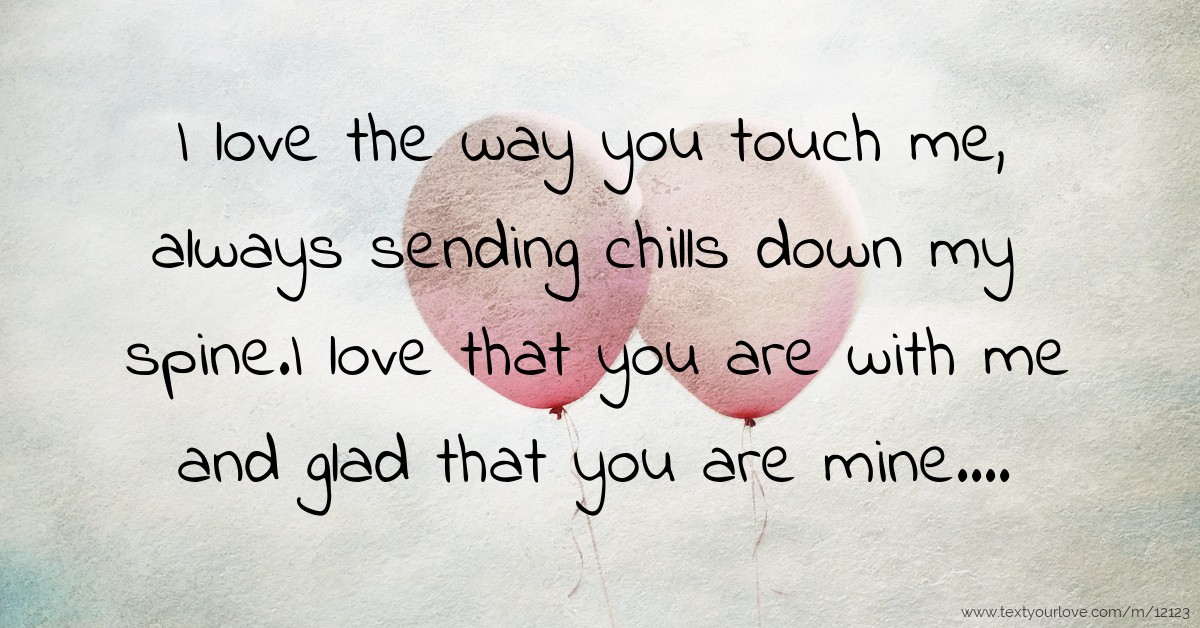 I love the way you touch me,
always sending chills down my
spine.I love that you are with me
and glad that you are mine....
www.textyourlove.com/m/12123